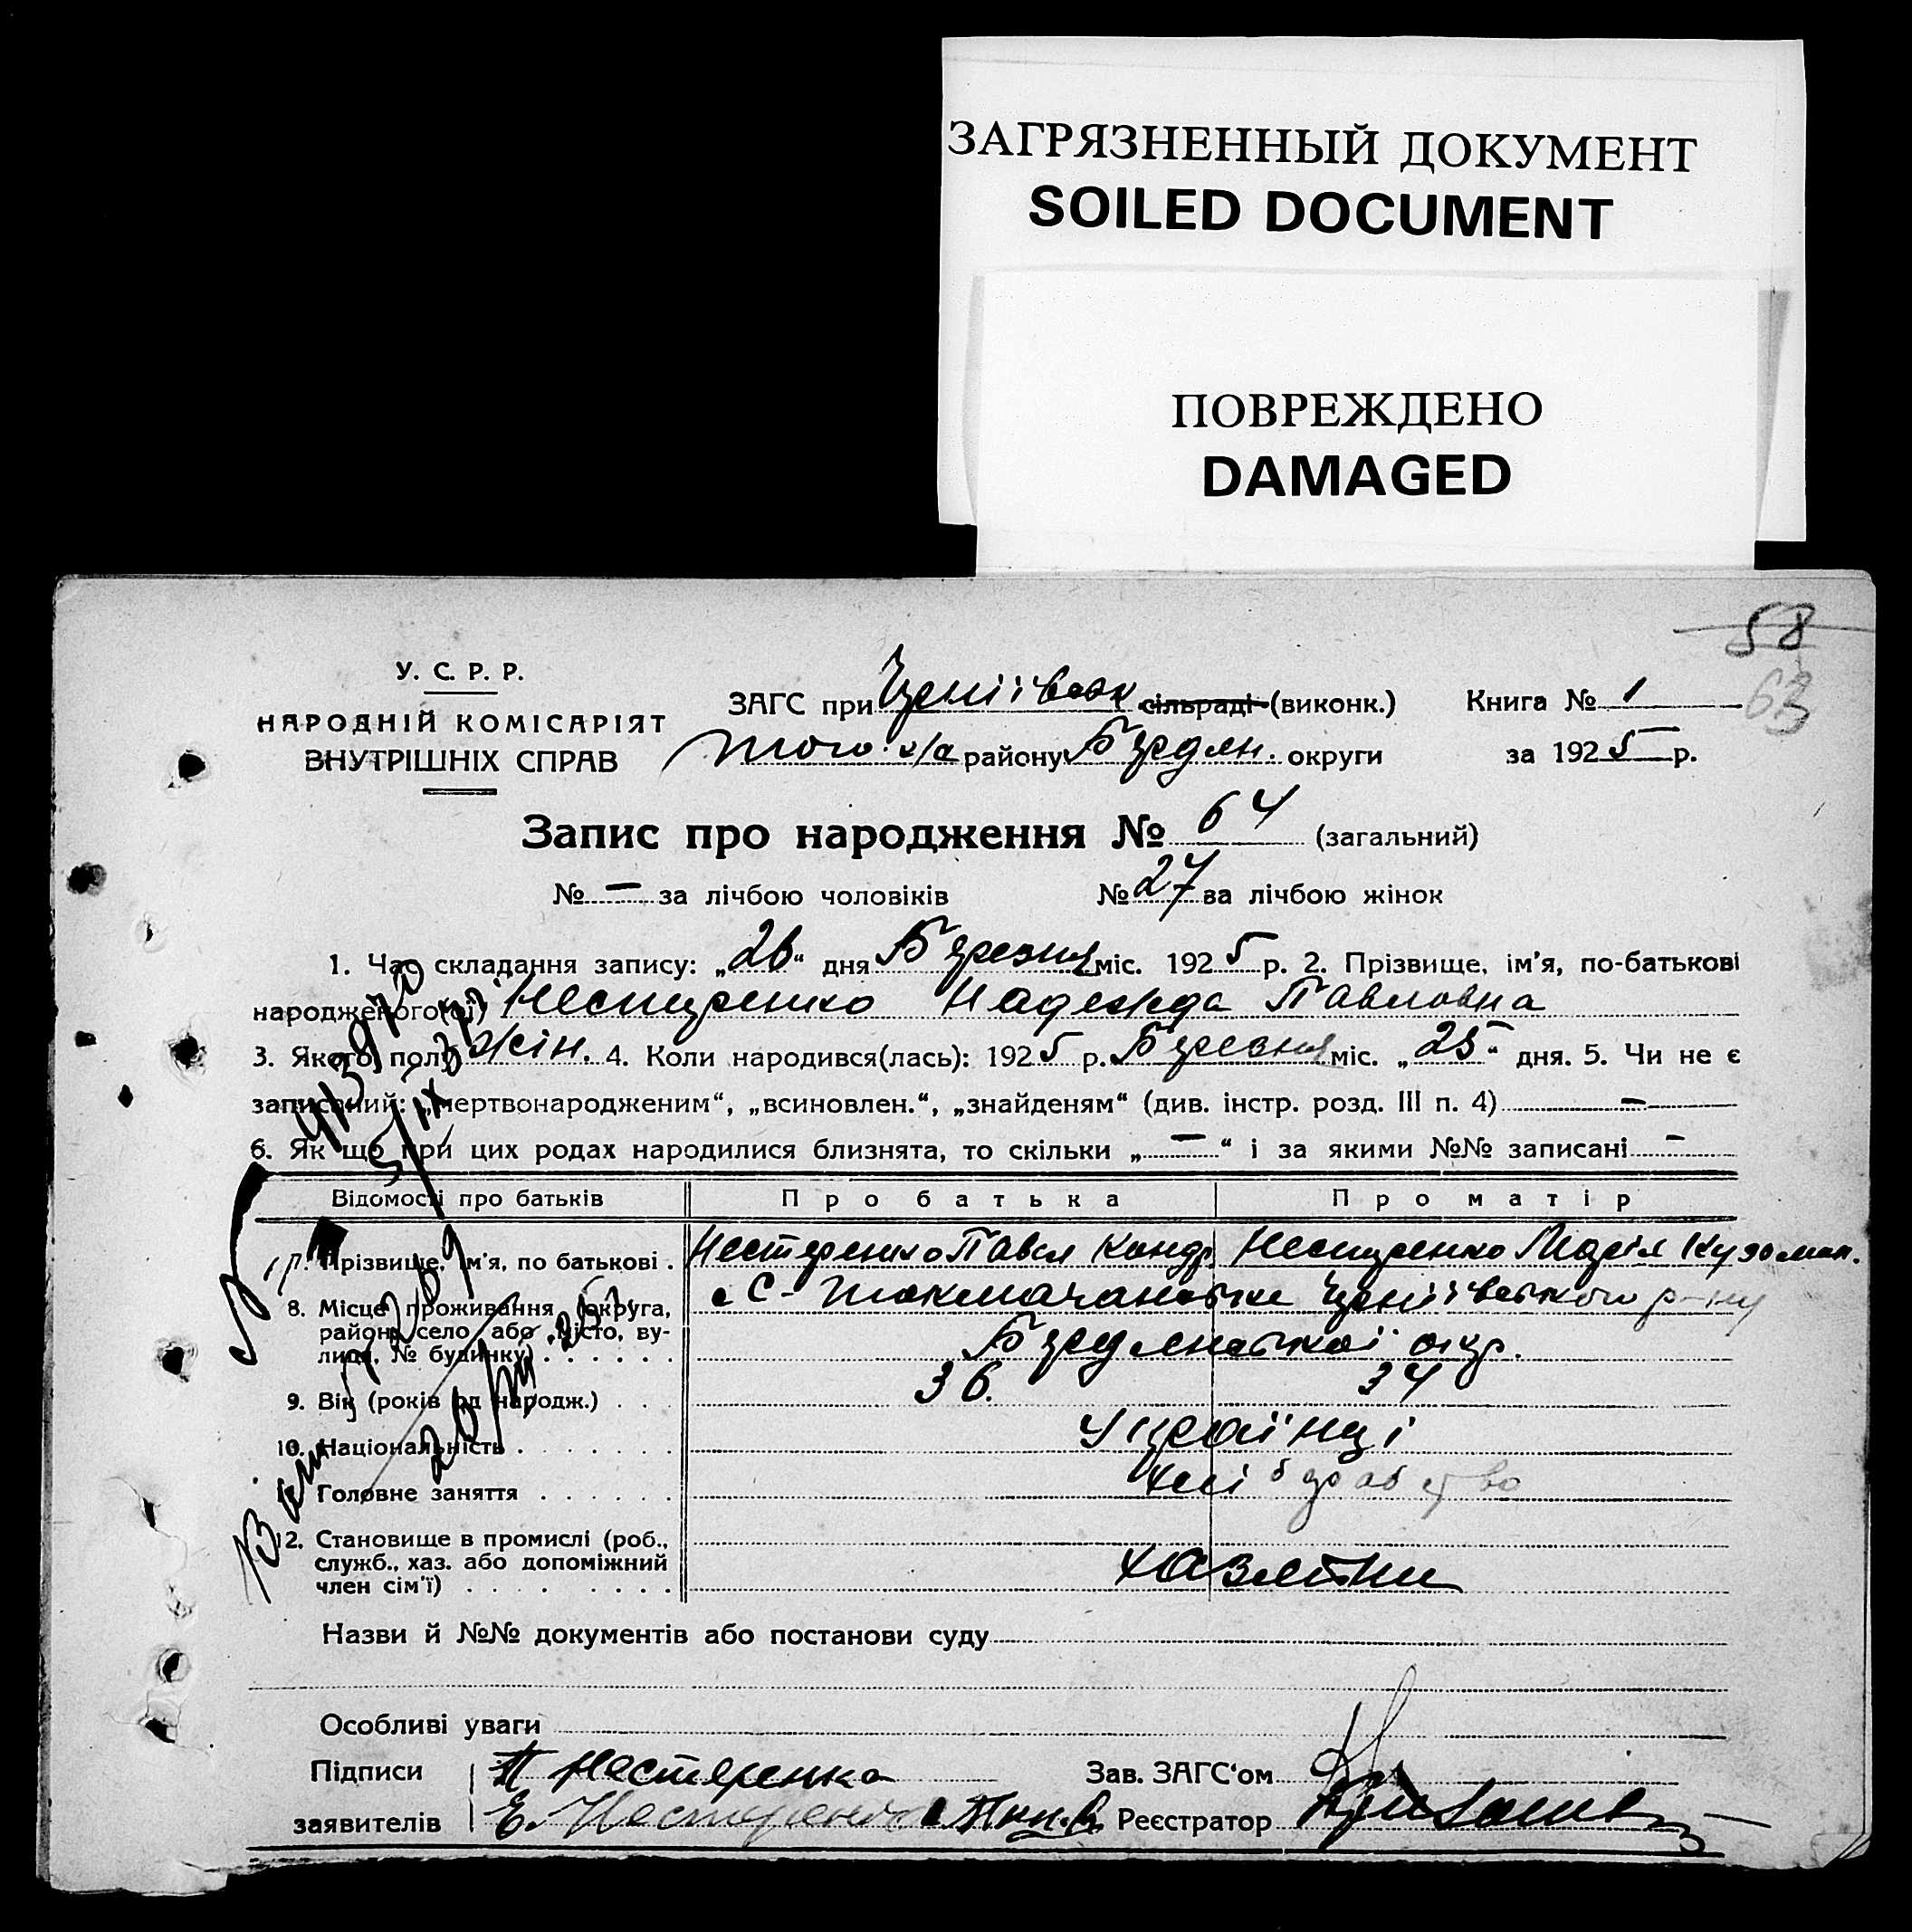 ЗАГРЯЗНЕННЫЙ ДОКУМЕНТ
SOILED DOCUMENT
ПОВРЕЖДЕНО
DAMAGED
58
63
У. С. Р. Р.
НАРОДНІЙ КОМІСАРІЯТ
ВНУТРІШНІХ СПРАВ
ЗАГС при сільраді (виконк.) Книга № 1
того ж/а району Бердян. округи за 1925 р.
Запис про народження № 64 (загальний)
№ — за лічбою чоловіків № 27 за лічбою жінок
1. Час складання запису: „26“ дня Березня міс. 1925 р. 2. Прізвище, ім'я, по-батькові
народженого(ої) Нестеренко Надежда Павловна
3. Якого полу жін. 4. Коли народився(лась): 1925 р. Березня міс. „25“ дня. 5. Чи не є
записаний: „мертвонародженим“, „всиновлен.“, „знайденям“ (див. інстр. розд. III п. 4) —
6. Як що при цих родах народилися близнята, то скільки „—“ і за якими №№ записані —
Відомості про батьків Про батька Про матір
7. Прізвище, ім'я, по батькові . Нестеренко Павел Кондр. Нестеренко Марія Кузьмин.
8. Місце проживання (округа, район, село або місто, вулиця, № будинку) . . . . . . с. Токмачанське р-ну
Бердянської окр.
9. Вік (років од народж.) . . . 36. 34
10. Національність . . . . . . . Українці
Головне заняття . . . . . . хліборобство
12. Становище в промислі (роб.,
служб., хаз. або допоміжний
член сім'ї) . . . . . . . . . хазяїни
Назви й №№ документів або постанови суду
Особливі уваги
Підписи П Нестеренко Зав. ЗАГС'ом
заявителів Е. Нестеренко Реєстратор